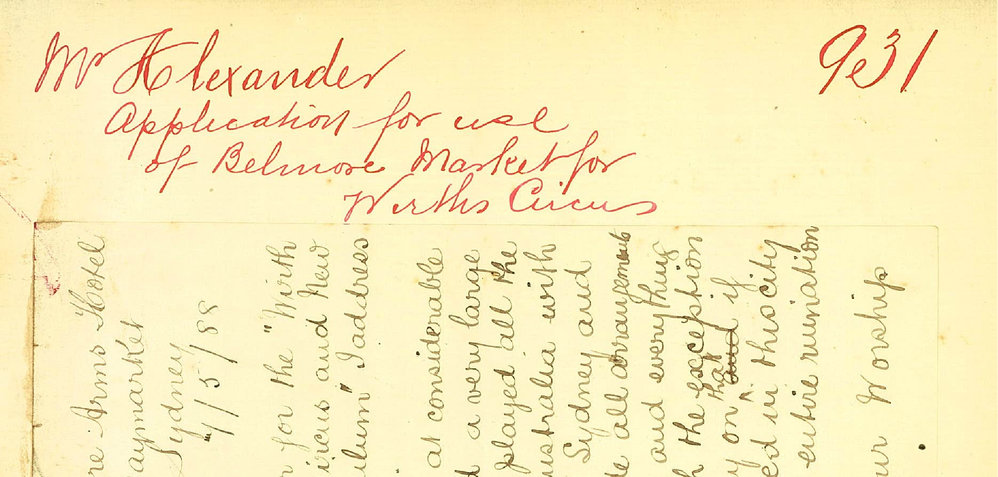 Mr Alexander
Application for use
of Belmore Market for
Wirths Circus
9e31
ne Arms Hotel
aymarket
Sydney
/5/88
r for the "Wirth
ircus and New
ilum" I address
at considerable
d a very large
played all the
ustralia with
Sydney and
de all arrangements
and every thing
h the exception
y on that and if
ed in this city
entire ruination
ur Worship